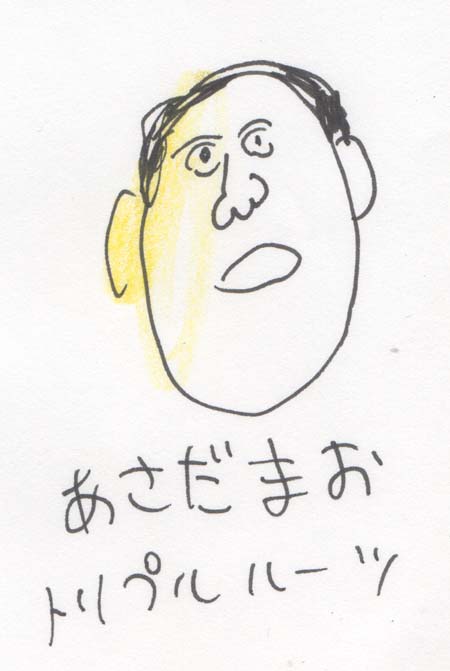 あさだまお
トリプルルーツ